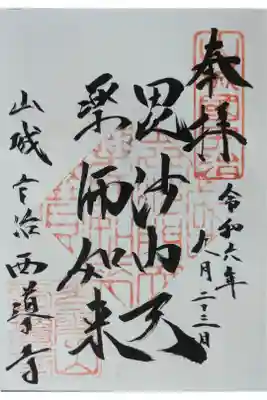 奉拝
令和六年
九月二十三日
毘沙門天
薬師如来
山城宇治西導寺